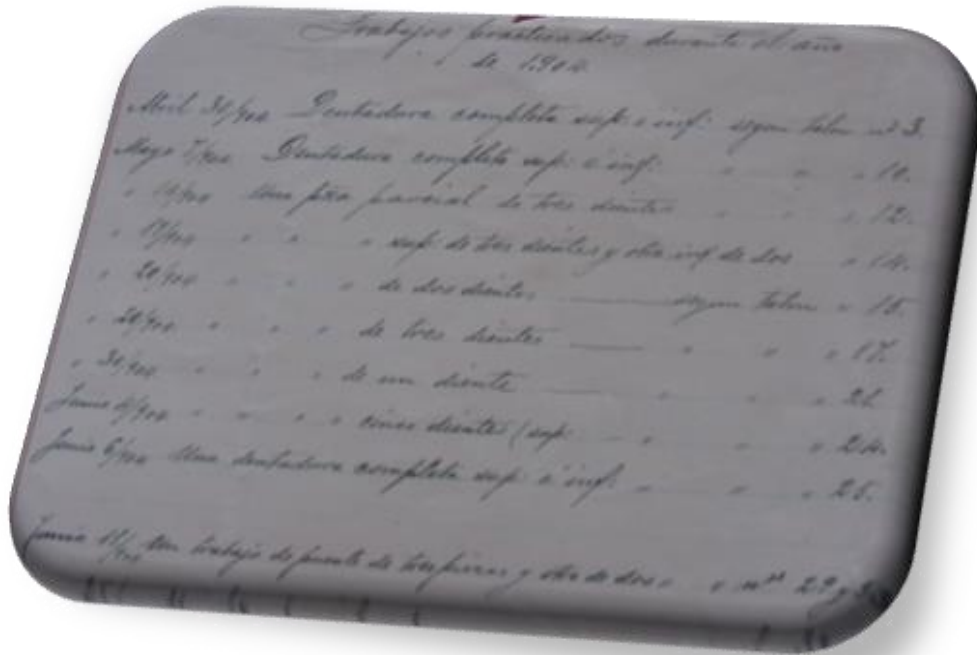 Trabajos practicados durante el año
de 1.900
Abril 30/900 Dentadura completa sup. e inf: segun talon nº 3.
Mayo 7/900 Dentadura completa sup: e inf: " " " 10.
" 14/900 Una pza parcial de tres dientes " " " 12.
" 17/900 " " " sup: de tres dientes y otra inf de dos " 14.
" 20/900 " " " de dos dientes segun talon " 15.
" 28/900 " " " de tres dientes " " " 17.
" 30/900 " " " de un diente " " " 21.
Junio 6/900 " " " cinco dientes (sup: " " " 24.
Junio 6/900 Una dentadura completa sup: e inf: " " " 25.
Junio /900 Un trabajo de puente de tres piezas y otro de dos " " nos 29 y